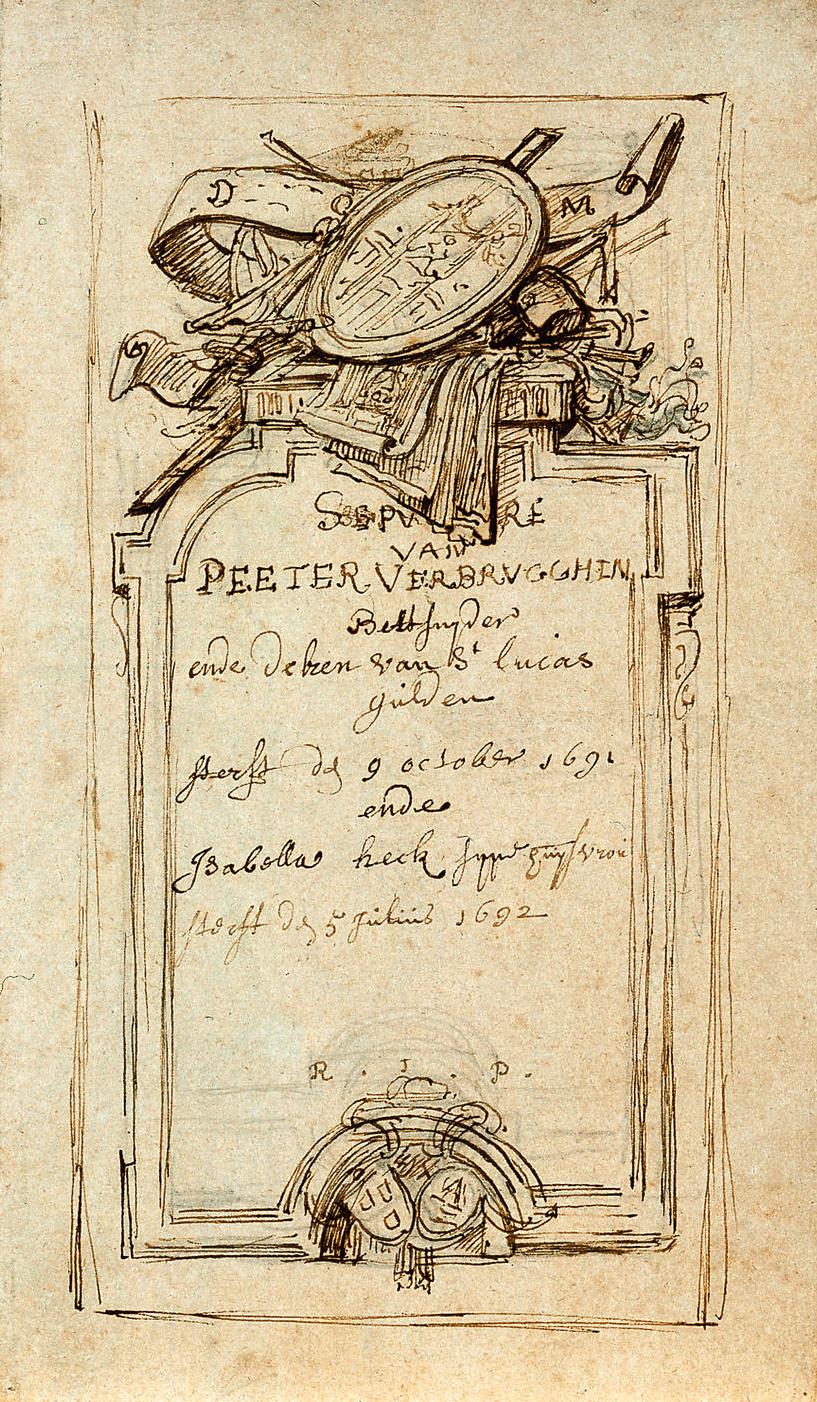 D M
SEPV RE
VAN
PEETER VERBRVGGHEN
Beltsnyder
ende deken van St lucas
gulden
sterft den 9 october 1691
ende
Isabella heck syne huysvrou
sterft den 5 Julius 1692
R . I . P .